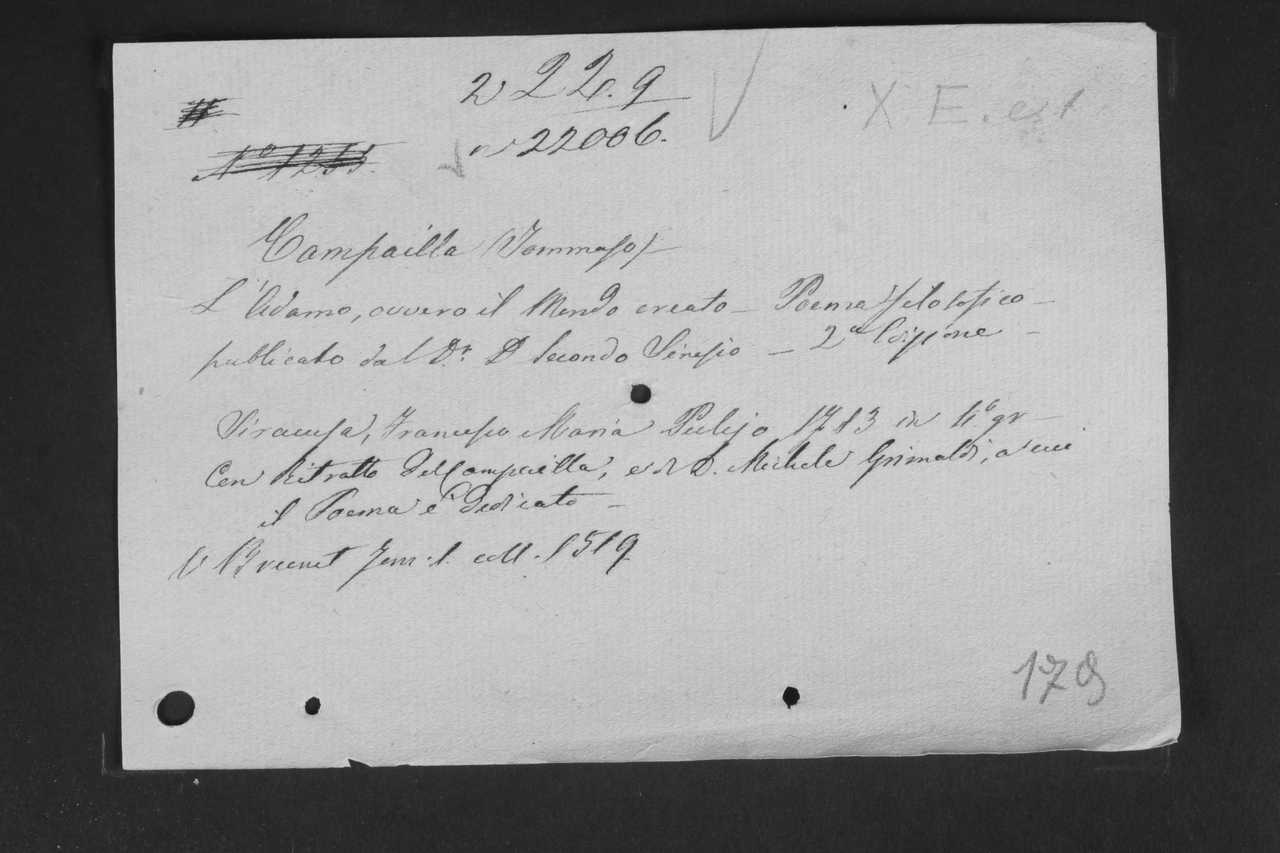 2 22.9
X E. e 1
N° 1255.
n 22006.
Campailla (Tommaso)
L'Adamo, ovvero il Mondo creato - Poema filosofico -
publicato dal Dr. D. Secondo Sinesio - 2a Edizione -
Siracusa, Francesco Maria Pulejo 1783 in 4° gr
Con Ritratto del Campailla, e di D. Michele Grimaldi, a cui
il Poema è dedicato -
V Brunet Tom. 1. coll. 1519
178